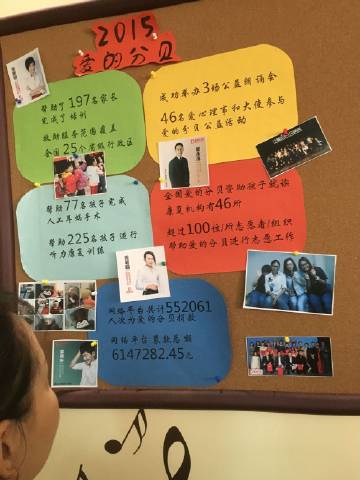 2015
爱的分贝
帮助了197名家长
完成了培训
救助服务范围覆盖
全国25个省级行政区
成功举办3场公益朗诵会
46名爱心理事和大使参与
爱的分贝公益活动
帮助77名孩子完成
人工耳蜗手术
帮助225名孩子进行
听力康复训练
全国爱的分贝资助孩子就读
康复机构有46所
超过100位/所志愿者/组织
帮助爱的分贝进行志愿工作
网络平台共计552061
人次为爱的分贝捐款
网络平台募款总额
6147282.45元